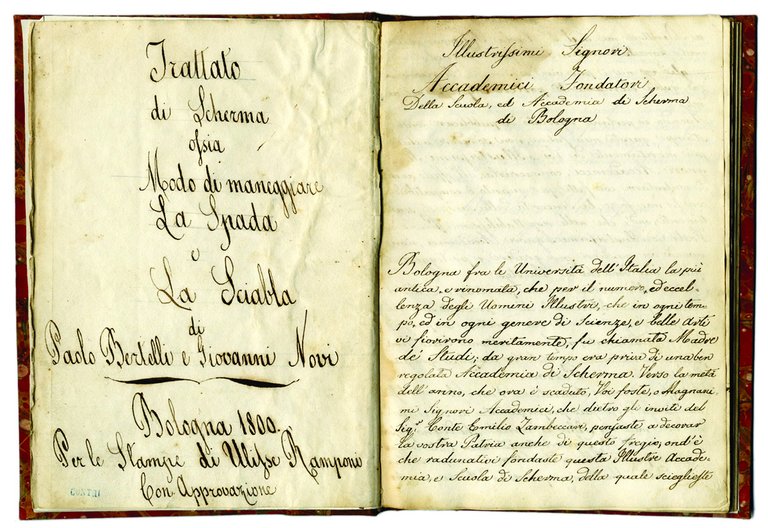 Trattato
di Scherma
ossia
Modo di maneggiare
La Spada
e
La Sciabla
di
Paolo Bertelli e Giovanni Novi
Bologna 1800.
Per le Stampe di Ulisse Ramponi
Con Approvazione
Illustrissimi Signori
Accademici Fondatori
Della Scuola, ed Accademia di Scherma
di Bologna
Bologna fra le Università dell'Italia la più
antica, e rinomata, che per il numero, ed eccel-
lenza degli Uomini Illustri, che in ogni tem-
po, ed in ogni genere di Scienze, e belle Arti
vi fiorirono meritamente, fu chiamata Madre
de' Studi, da gran tempo era priva di una ben
regolata Accademia di Scherma. Verso la metà
dell'anno, che ora è scaduto, Voi foste, o Magnani-
mi Signori Accademici, che dietro gli inviti del
Sig.r Conte Emilio Zambeccari, pensaste a decorar
la vostra Patria anche di questo fregio, ond'è
che radunativi fondaste questa Illustre Accade-
mia, e Scuola di Scherma, della quale sceglieste